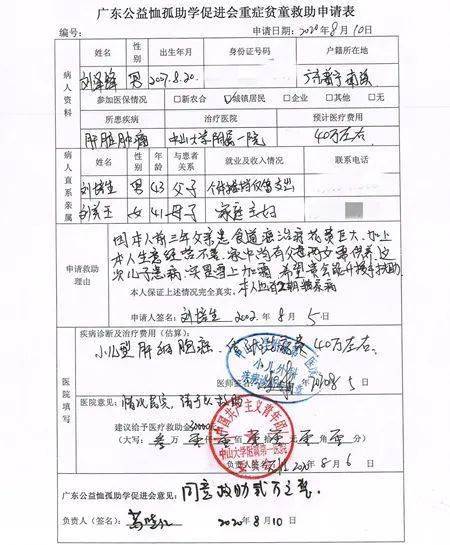 广东公益恤孤助学促进会重症贫童救助申请表
编号： 申请日期：2020年8月10日
病人资料
姓名 性别 出生年月 身份证号码 户籍所在地
男 8.20.
参加医保情况 □新农合 ☑城镇居民 □企业 □其他 □无
所患疾病 治疗医院 预计医疗费用
肝脏肿瘤 中山大学附属一院 40万左右
病人直系亲属
姓名 性别 年龄 与患者关系 就业及收入情况 联系电话
刘培生 男 43 父子
女 41 母子 家庭主妇
申请救助理由
因本人前三年父亲患食道癌治疗花费巨大，加上
本人生意经营不善，家中尚有父母两女要供养，这
次儿子患病，实是雪上加霜，希望贵会能伸援手救助。
本人保证上述情况完全真实，
申请人签名：刘培生 年8月5日
医院填写
疾病诊断及治疗费用（估算）：
小儿型肝细胞癌， 40万左右。
小儿外科
医师签 8 5日
医院意见：情况属实，请予以救助
建议给予医疗救助金30000
（大写：叁万零仟零佰零拾零元零角零分）
中国共产主义青年团
中山大学附属第一医院
负责人签名 8月6日
广东公益恤孤助学促进会意见：同意救助贰万元整。
负责人（签名）： 2020年8月10日